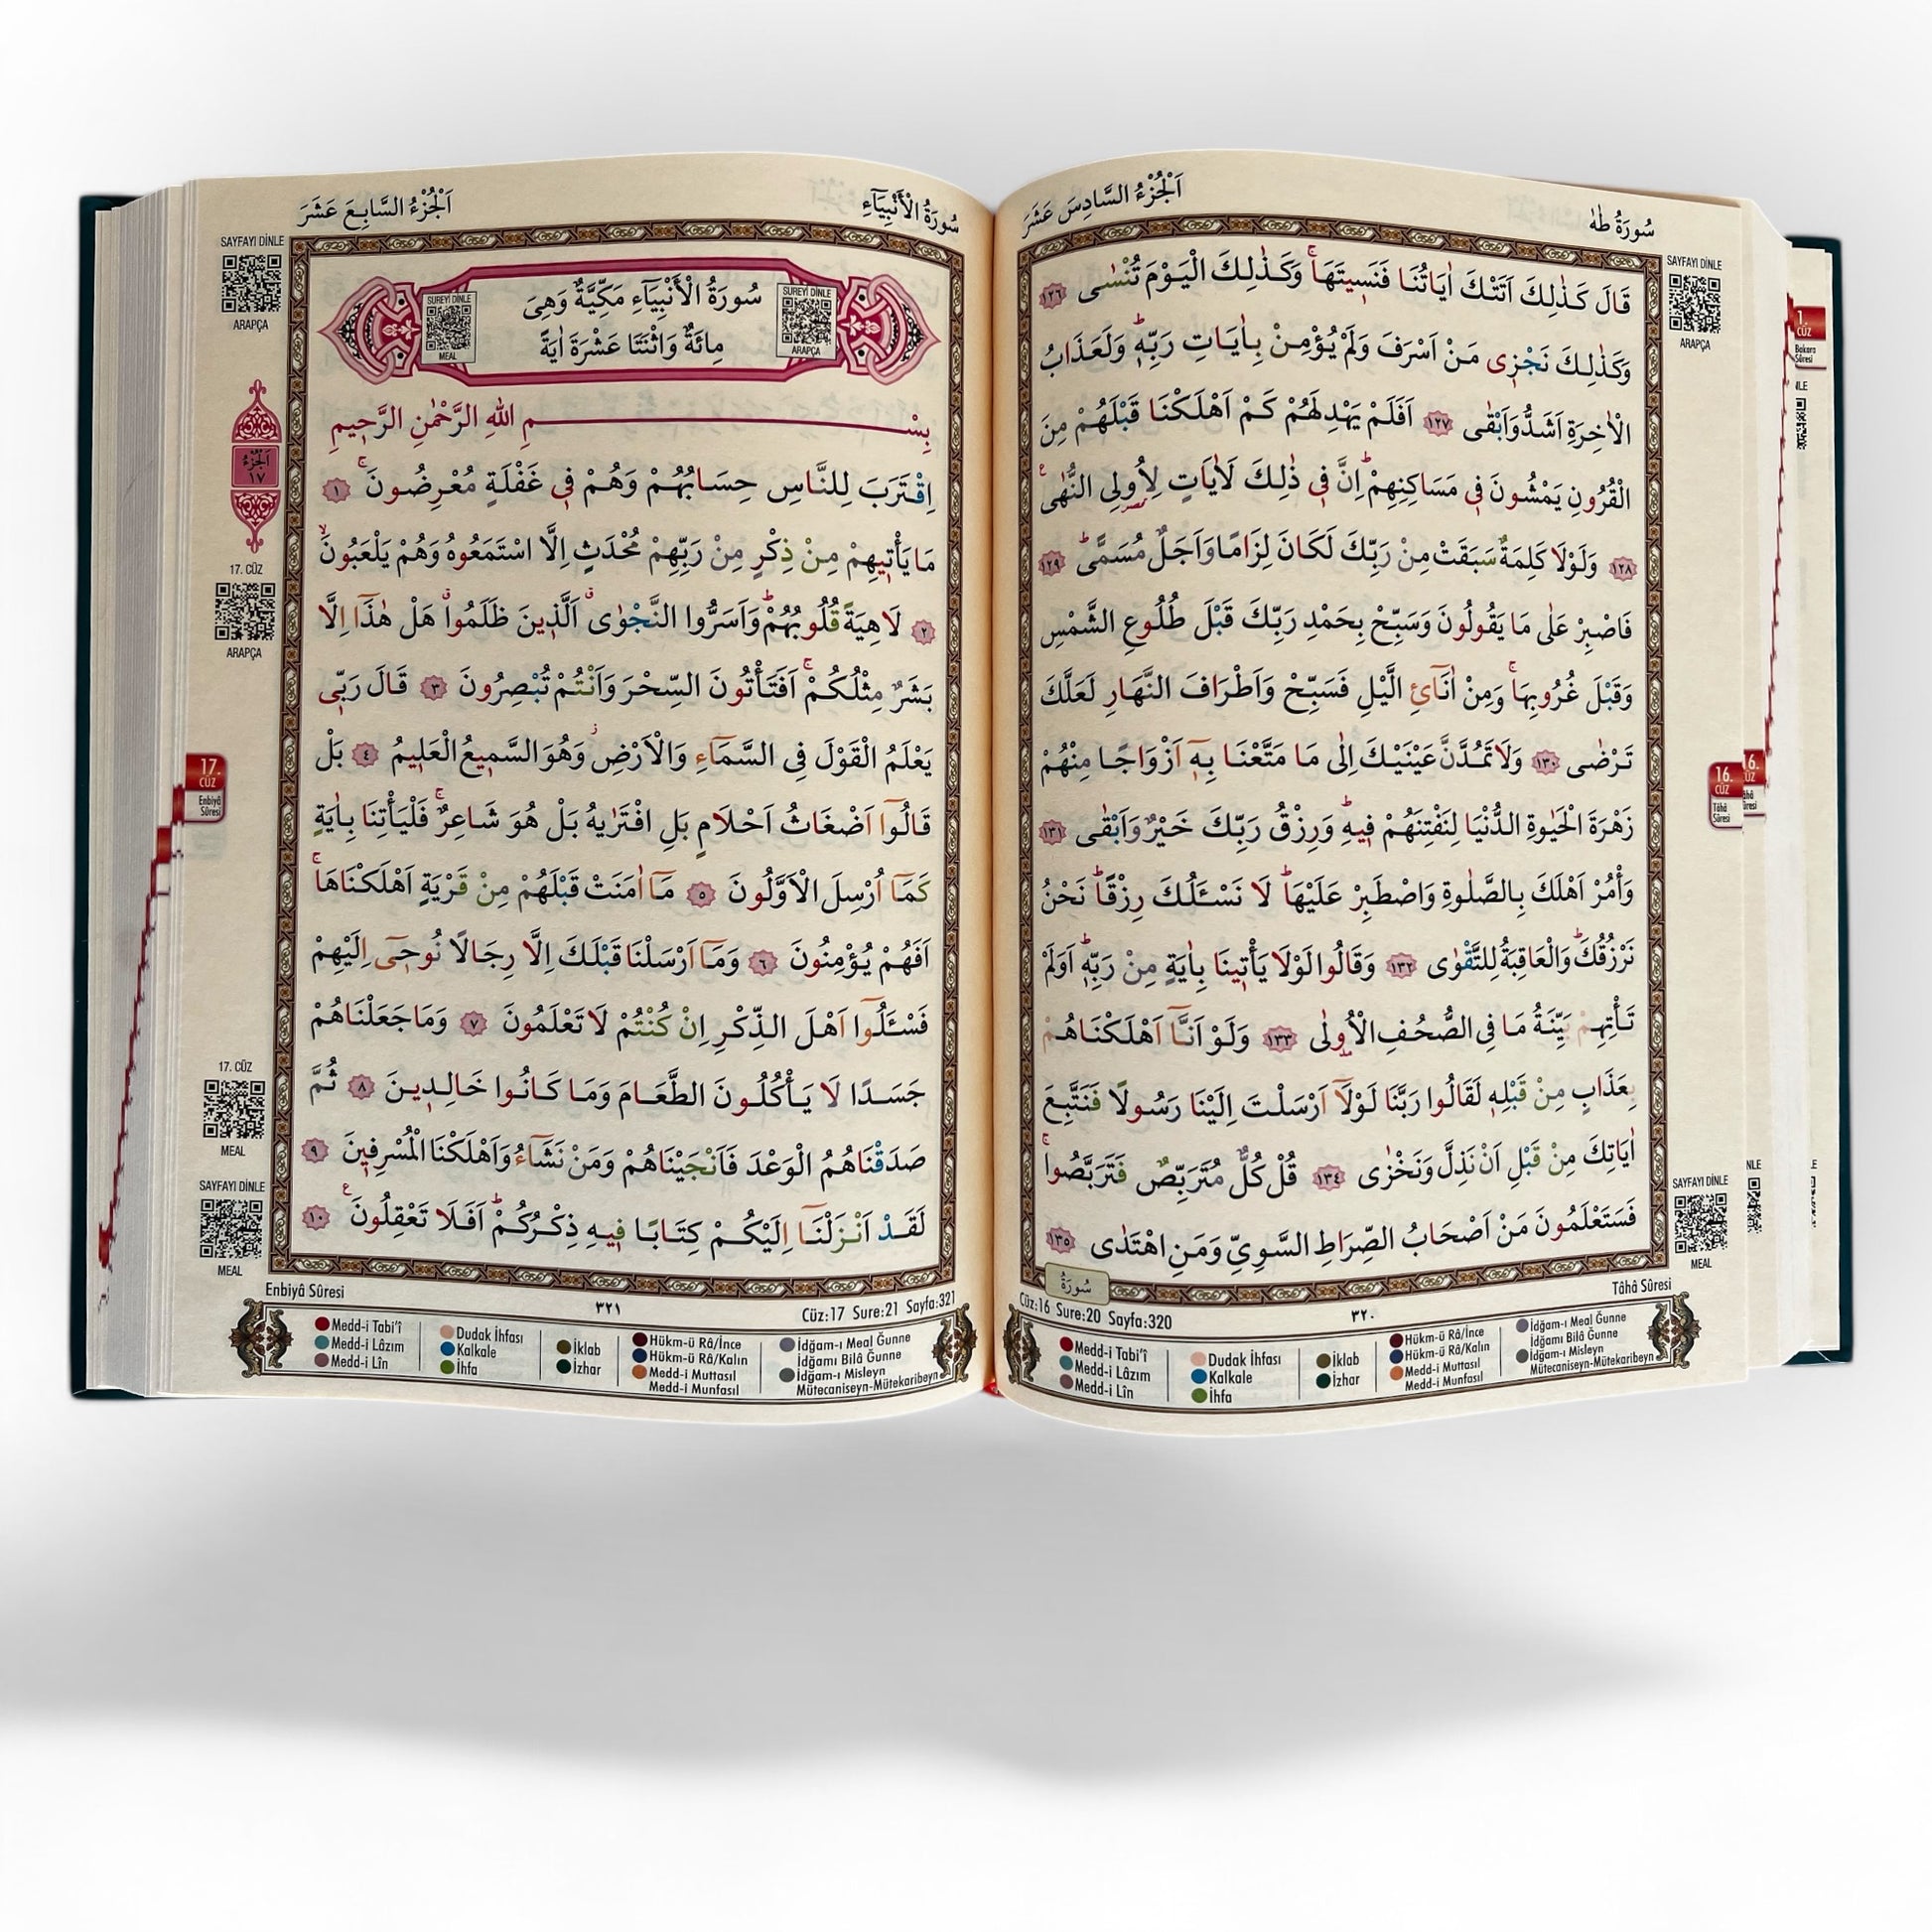 سُورَةُ طٰهٰ
اَلْجُزْءُ السَّادِسَ عَشَرَ
SAYFAYI DİNLE
ARAPÇA
قَالَ كَذٰلِكَ اَتَتْكَ اٰيَاتُنَا فَنَسٖيتَهَاۚ وَكَذٰلِكَ الْيَوْمَ تُنْسٰى ﴿١٢٦﴾
وَكَذٰلِكَ نَجْزٖى مَنْ اَسْرَفَ وَلَمْ يُؤْمِنْ بِاٰيَاتِ رَبِّهٖؕ وَلَعَذَابُ
الْاٰخِرَةِ اَشَدُّ وَاَبْقٰى ﴿١٢٧﴾ اَفَلَمْ يَهْدِ لَهُمْ كَمْ اَهْلَكْنَا قَبْلَهُمْ مِنَ
الْقُرُونِ يَمْشُونَ فٖى مَسَاكِنِهِمْؕ اِنَّ فٖى ذٰلِكَ لَاٰيَاتٍ لِاُولِى النُّهٰى
﴿١٢٨﴾ وَلَوْلَا كَلِمَةٌ سَبَقَتْ مِنْ رَبِّكَ لَكَانَ لِزَامًا وَاَجَلٌ مُسَمًّىؕ ﴿١٢٩﴾
فَاصْبِرْ عَلٰى مَا يَقُولُونَ وَسَبِّحْ بِحَمْدِ رَبِّكَ قَبْلَ طُلُوعِ الشَّمْسِ
وَقَبْلَ غُرُوبِهَاۚ وَمِنْ اٰنَآئِ الَّيْلِ فَسَبِّحْ وَاَطْرَافَ النَّهَارِ لَعَلَّكَ
تَرْضٰى ﴿١٣٠﴾ وَلَا تَمُدَّنَّ عَيْنَيْكَ اِلٰى مَا مَتَّعْنَا بِهٖٓ اَزْوَاجًا مِنْهُمْ
زَهْرَةَ الْحَيٰوةِ الدُّنْيَا لِنَفْتِنَهُمْ فٖيهِؕ وَرِزْقُ رَبِّكَ خَيْرٌ وَاَبْقٰى ﴿١٣١﴾
وَأْمُرْ اَهْلَكَ بِالصَّلٰوةِ وَاصْطَبِرْ عَلَيْهَاؕ لَا نَسْـَٔلُكَ رِزْقًاؕ نَحْنُ
نَرْزُقُكَؕ وَالْعَاقِبَةُ لِلتَّقْوٰى ﴿١٣٢﴾ وَقَالُوا لَوْلَا يَأْتٖينَا بِاٰيَةٍ مِنْ رَبِّهٖؕ اَوَلَمْ
تَأْتِهِمْ بَيِّنَةُ مَا فِى الصُّحُفِ الْاُولٰى ﴿١٣٣﴾ وَلَوْ اَنَّٓا اَهْلَكْنَاهُمْ
بِعَذَابٍ مِنْ قَبْلِهٖ لَقَالُوا رَبَّنَا لَوْلَٓا اَرْسَلْتَ اِلَيْنَا رَسُولًا فَنَتَّبِعَ
اٰيَاتِكَ مِنْ قَبْلِ اَنْ نَذِلَّ وَنَخْزٰى ﴿١٣٤﴾ قُلْ كُلٌّ مُتَرَبِّصٌ فَتَرَبَّصُواۚ
فَسَتَعْلَمُونَ مَنْ اَصْحَابُ الصِّرَاطِ السَّوِىِّ وَمَنِ اهْتَدٰى ﴿١٣٥﴾
سُورَةُ
SAYFAYI DİNLE
MEAL
Tâhâ Sûresi
٣٢٠
Cüz:16 Sure:20 Sayfa:320
Medd-i Tabi'î
Medd-i Lâzım
Medd-i Lîn
Dudak İhfası
Kalkale
İhfa
İklab
İzhar
Hükm-ü Râ/İnce
Hükm-ü Râ/Kalın
Medd-i Muttasıl
Medd-i Munfasıl
İdğam-ı Meal Ğunne
İdğamı Bilâ Ğunne
İdğam-ı Misleyn
Mütecaniseyn-Mütekaribeyn
1. CÜZ
Bakara Sûresi
16. CÜZ
Tâhâ Sûresi
سُورَةُ الْاَنْبِيَٓاءِ
اَلْجُزْءُ السَّابِعَ عَشَرَ
SAYFAYI DİNLE
ARAPÇA
سُورَةُ الْاَنْبِيَٓاءِ مَكِّيَّةٌ وَهِىَ
مِائَةٌ وَاثْنَتَا عَشْرَةَ اٰيَةً
SUREYİ DİNLE
ARAPÇA
SUREYİ DİNLE
MEAL
بِسْمِ اللّٰهِ الرَّحْمٰنِ الرَّحٖيمِ
اِقْتَرَبَ لِلنَّاسِ حِسَابُهُمْ وَهُمْ فٖى غَفْلَةٍ مُعْرِضُونَۚ ﴿١﴾
مَا يَأْتٖيهِمْ مِنْ ذِكْرٍ مِنْ رَبِّهِمْ مُحْدَثٍ اِلَّا اسْتَمَعُوهُ وَهُمْ يَلْعَبُونَۙ
﴿٢﴾ لَاهِيَةً قُلُوبُهُمْؕ وَاَسَرُّوا النَّجْوٰىۗ اَلَّذٖينَ ظَلَمُواۗ هَلْ هٰذَٓا اِلَّا
بَشَرٌ مِثْلُكُمْۚ اَفَتَأْتُونَ السِّحْرَ وَاَنْتُمْ تُبْصِرُونَ ﴿٣﴾ قَالَ رَبّٖى
يَعْلَمُ الْقَوْلَ فِى السَّمَٓاءِ وَالْاَرْضِؗ وَهُوَ السَّمٖيعُ الْعَلٖيمُ ﴿٤﴾ بَلْ
قَالُٓوا اَضْغَاثُ اَحْلَامٍ بَلِ افْتَرٰيهُ بَلْ هُوَ شَاعِرٌۚ فَلْيَأْتِنَا بِاٰيَةٍ
كَمَٓا اُرْسِلَ الْاَوَّلُونَ ﴿٥﴾ مَٓا اٰمَنَتْ قَبْلَهُمْ مِنْ قَرْيَةٍ اَهْلَكْنَاهَاۚ
اَفَهُمْ يُؤْمِنُونَ ﴿٦﴾ وَمَٓا اَرْسَلْنَا قَبْلَكَ اِلَّا رِجَالًا نُوحٖٓى اِلَيْهِمْ
فَسْـَٔلُٓوا اَهْلَ الذِّكْرِ اِنْ كُنْتُمْ لَا تَعْلَمُونَ ﴿٧﴾ وَمَا جَعَلْنَاهُمْ
جَسَدًا لَا يَأْكُلُونَ الطَّعَامَ وَمَا كَانُوا خَالِدٖينَ ﴿٨﴾ ثُمَّ
صَدَقْنَاهُمُ الْوَعْدَ فَاَنْجَيْنَاهُمْ وَمَنْ نَشَٓاءُ وَاَهْلَكْنَا الْمُسْرِفٖينَ ﴿٩﴾
لَقَدْ اَنْزَلْنَٓا اِلَيْكُمْ كِتَابًا فٖيهِ ذِكْرُكُمْؕ اَفَلَا تَعْقِلُونَ ﴿١٠﴾
اَلْجُزْءُ
١٧
17. CÜZ
ARAPÇA
17. CÜZ
Enbiyâ Sûresi
17. CÜZ
MEAL
SAYFAYI DİNLE
MEAL
Enbiyâ Sûresi
٣٢١
Cüz:17 Sure:21 Sayfa:321
Medd-i Tabi'î
Medd-i Lâzım
Medd-i Lîn
Dudak İhfası
Kalkale
İhfa
İklab
İzhar
Hükm-ü Râ/İnce
Hükm-ü Râ/Kalın
Medd-i Muttasıl
Medd-i Munfasıl
İdğam-ı Meal Ğunne
İdğamı Bilâ Ğunne
İdğam-ı Misleyn
Mütecaniseyn-Mütekaribeyn